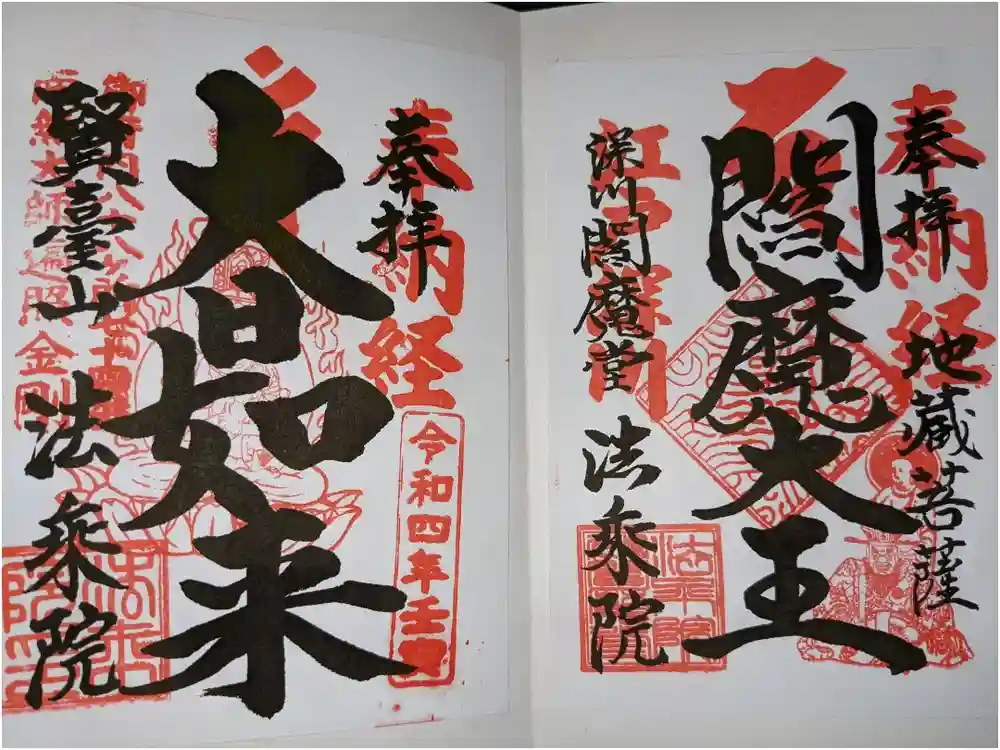 奉拝
奉納経
地蔵菩薩
閻魔大王
深川閻魔堂
法乗院
奉拝
奉納経
令和四年壬寅
大日如来
賢臺山
法乗院
金剛